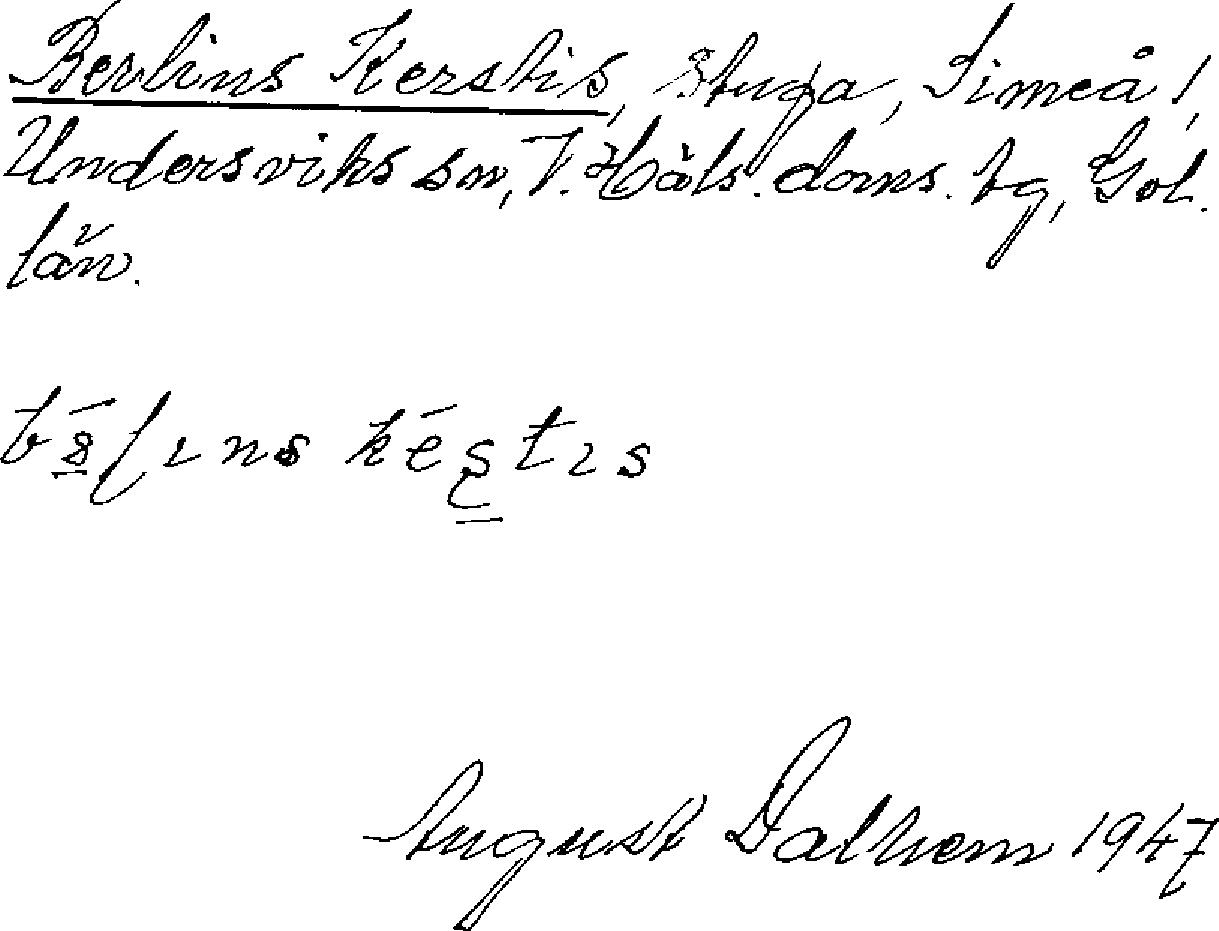 Berlins Kerstis, Stuga, Simeå!,
Undersviks sn, V. Häls. doms. tg, Gvl.
län.
kéştıs
August Dalhem 1947